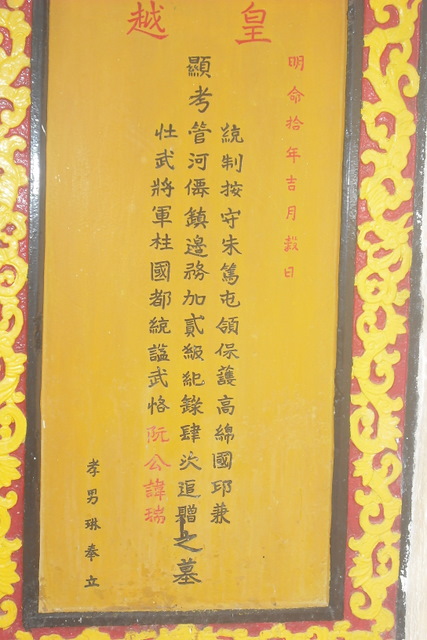 皇越
明命拾年吉月穀日
顯考
統制按守朱篤屯領保護高綿國印兼
管河僊鎮邊務加貳級紀錄肆次追贈
壯武將軍柱國都統謚武恪阮公諱瑞
之墓
孝男琳奉立